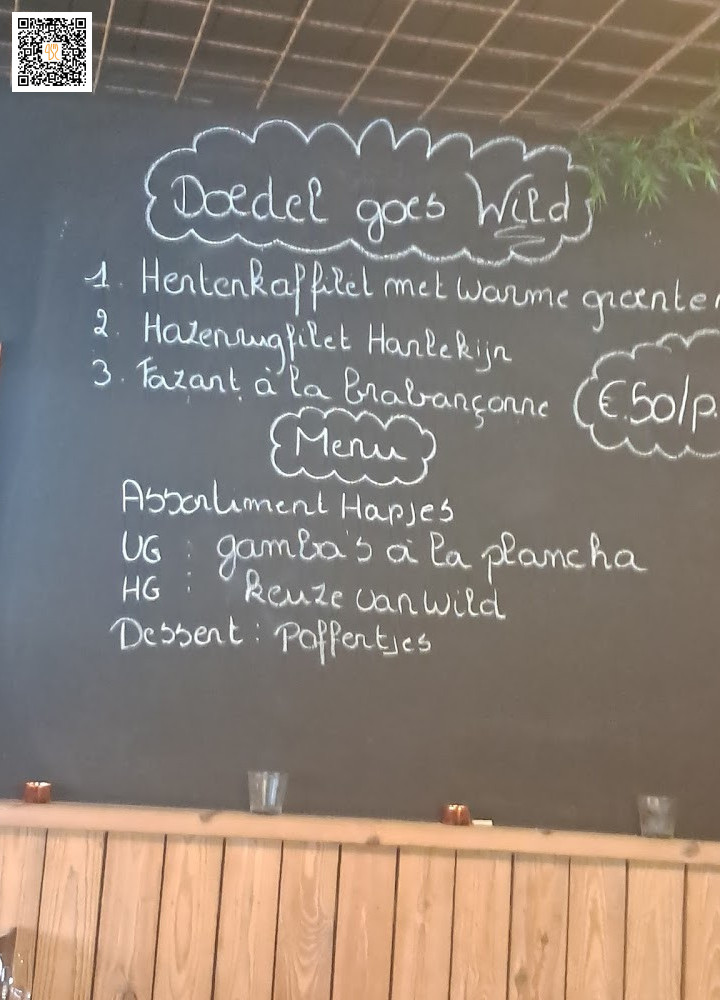 Doedel goes Wild
1. Hertenkalffilet met warme groenten
2. Hazenrugfilet Harlekijn
3. Fazant à la brabançonne
€.50/p.
Menu
Assortiment Hapjes
VG : gamba's à la plancha
HG : keuze van wild
Dessert : Poffertjes